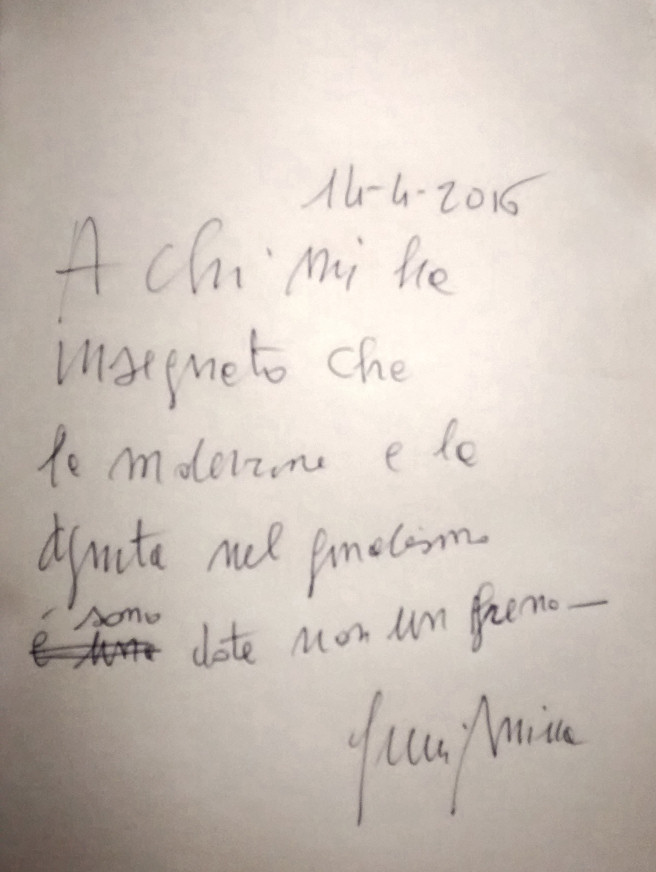 14-4-2016
A chi mi ha
insegnato che
la moderazione e la
dignità nel giornalismo
sono
è una dote non un freno—
Gianni Minà